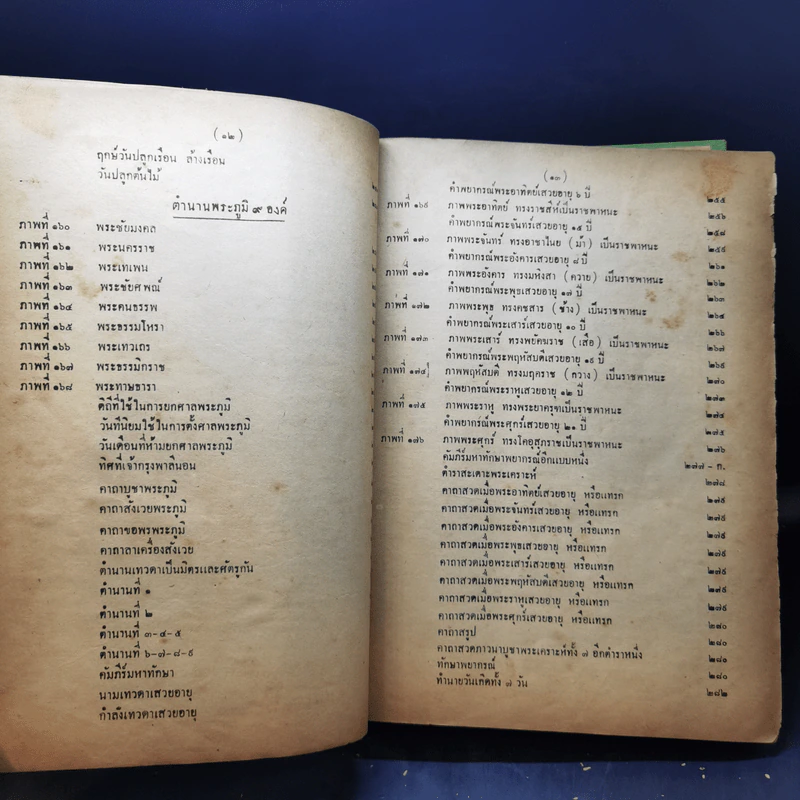 (๑๒)
ฤกษ์วันปลูกเรือน ล้างเรือน
วันปลูกต้นไม้
ตำนานพระภูมิ ๙ องค์
ภาพที่ ๑๖๐ พระชัยมงคล
ภาพที่ ๑๖๑ พระนครราช
ภาพที่ ๑๖๒ พระเทเพน
ภาพที่ ๑๖๓ พระชัยศพณ์
ภาพที่ ๑๖๔ พระคนธรรพ
ภาพที่ ๑๖๕ พระธรรมโหรา
ภาพที่ ๑๖๖ พระเทวเถร
ภาพที่ ๑๖๗ พระธรรมิกราช
ภาพที่ ๑๖๘ พระทาษธารา
ดิถีที่ใช้ในการยกศาลพระภูมิ
วันที่นิยมใช้ในการตั้งศาลพระภูมิ
วันเดือนที่ห้ามยกศาลพระภูมิ
ทิศที่เจ้ากรุงพาลีนอน
คาถาบูชาพระภูมิ
คาถาสังเวยพระภูมิ
คาถาขอพรพระภูมิ
คาถาลาเครื่องสังเวย
ตำนานเทวดาเป็นมิตรและศัตรูกัน
ตำนานที่ ๑
ตำนานที่ ๒
ตำนานที่ ๓-๔-๕
ตำนานที่ ๖-๗-๘-๙
คัมภีร์มหาทักษา
นามเทวดาเสวยอายุ
กำลังเทวดาเสวยอายุ
(๑๓)
คำพยากรณ์พระอาทิตย์เสวยอายุ ๖ ปี ๒๕๕
ภาพที่ ๑๖๙ ภาพพระอาทิตย์ ทรงราชสีห์เป็นราชพาหนะ ๒๕๖
คำพยากรณ์พระจันทร์เสวยอายุ ๑๕ ปี ๒๕๘
ภาพที่ ๑๗๐ ภาพพระจันทร์ ทรงอาชาไนย (ม้า) เป็นราชพาหนะ ๒๕๙
คำพยากรณ์พระอังคารเสวยอายุ ๘ ปี ๒๖๑
ภาพที่ ๑๗๑ ภาพพระอังคาร ทรงมหิงสา (ควาย) เป็นราชพาหนะ ๒๖๒
คำพยากรณ์พระพุธเสวยอายุ ๑๗ ปี ๒๖๓
ภาพที่ ๑๗๒ ภาพพระพุธ ทรงคชสาร (ช้าง) เป็นราชพาหนะ
คำพยากรณ์พระเสาร์เสวยอายุ ๑๐ ปี ๒๖๖
ภาพที่ ๑๗๓ ภาพพระเสาร์ ทรงพยัคฆราช (เสือ) เป็นราชพาหนะ ๒๖๗
คำพยากรณ์พระพฤหัสบดีเสวยอายุ ๑๙ ปี ๒๖๙
ภาพที่ ๑๗๔ ภาพพฤหัสบดี ทรงมฤคราช (กวาง) เป็นราชพาหนะ ๒๗๐
คำพยากรณ์พระราหูเสวยอายุ ๑๒ ปี ๒๗๓
ภาพที่ ๑๗๕ ภาพพระราหู ทรงพระยาครุฑเป็นราชพาหนะ ๒๗๔
คำพยากรณ์พระศุกร์เสวยอายุ ๒๑ ปี ๒๗๕
ภาพที่ ๑๗๖ ภาพพระศุกร์ ทรงโคอุสุภราชเป็นราชพาหนะ ๒๗๖
คัมภีร์มหาทักษาพยากรณ์อีกแบบหนึ่ง ๒๗๗ - ก.
ตำราสะเดาะพระเคราะห์ ๒๗๘
คาถาสวดเมื่อพระอาทิตย์เสวยอายุ หรือแทรก ๒๗๙
คาถาสวดเมื่อพระจันทร์เสวยอายุ หรือแทรก ๒๗๙
คาถาสวดเมื่อพระอังคารเสวยอายุ หรือแทรก ๒๗๙
คาถาสวดเมื่อพระพุธเสวยอายุ หรือแทรก ๒๗๙
คาถาสวดเมื่อพระเสาร์เสวยอายุ หรือแทรก ๒๗๙
คาถาสวดเมื่อพระพฤหัสบดีเสวยอายุ หรือแทรก ๒๗๙
คาถาสวดเมื่อพระราหูเสวยอายุ หรือแทรก ๒๗๙
คาถาสวดเมื่อพระศุกร์เสวยอายุ หรือแทรก ๒๘๐
คาถาสรุป ๒๘๐
คาถาสวดภาวนาบูชาพระเคราะห์ทั้ง ๗ อีกตำราหนึ่ง ๒๘๐
ทักษาพยากรณ์
ทำนายวันเกิดทั้ง ๗ วัน ๒๘๒